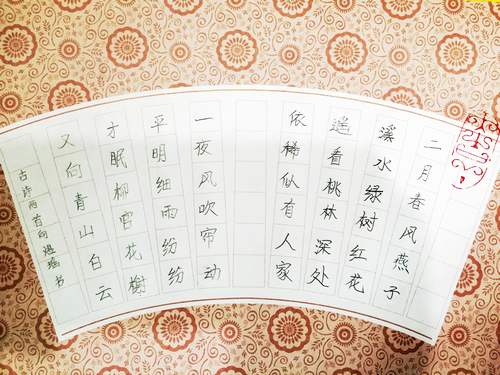 二月春风燕子
溪水绿树红花
遥看桃林深处
依稀似有人家
一夜风吹帘动
平明细雨纷纷
才眠柳花榭
又向青山白云
古诗两首向书